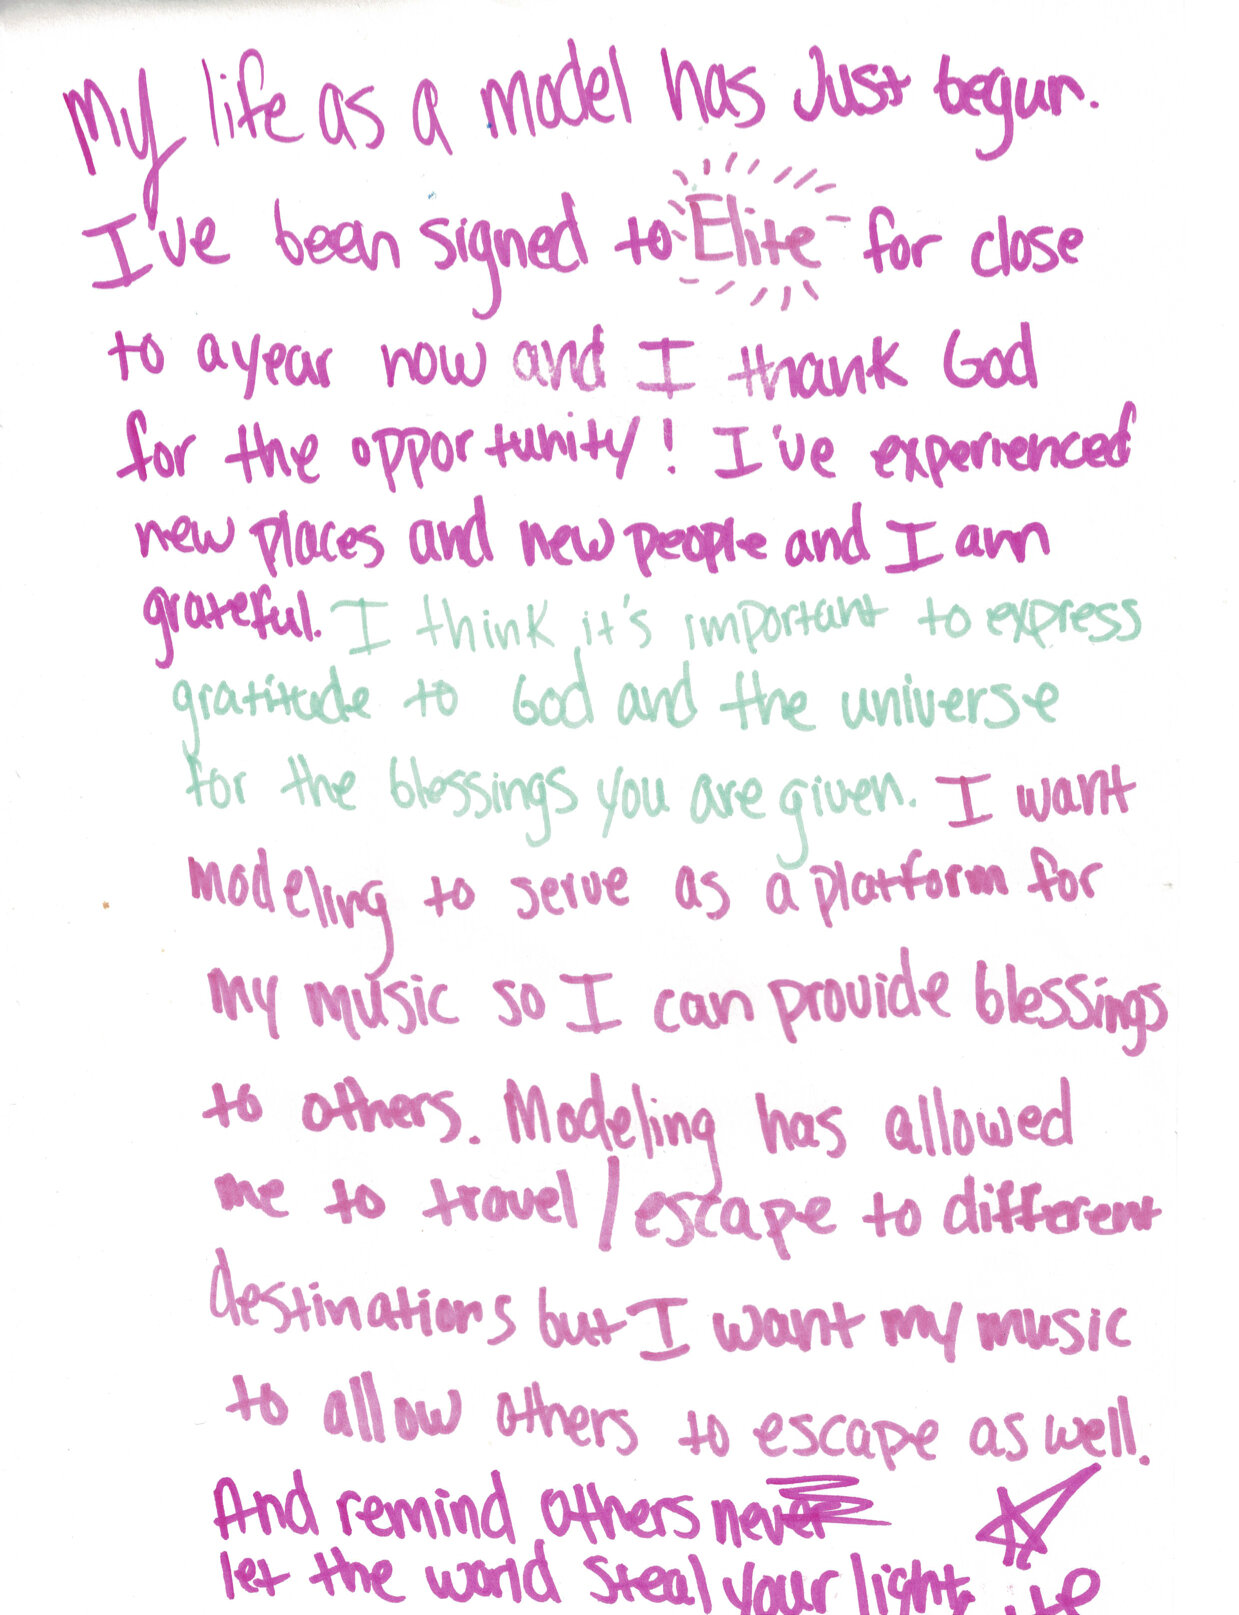 My life as a model has Just begun.
I've been signed to Elite for close
to a year now and I thank God
for the opportunity! I've experienced
new places and new people and I am
grateful. I think it's important to express
gratitude to God and the universe
for the blessings you are given. I want
modeling to serve as a platform for
my music so I can provide blessings
to others. Modeling has allowed
me to travel/escape to different
destinations but I want my music
to allow others to escape as well.
And remind others never
let the world steal your light.